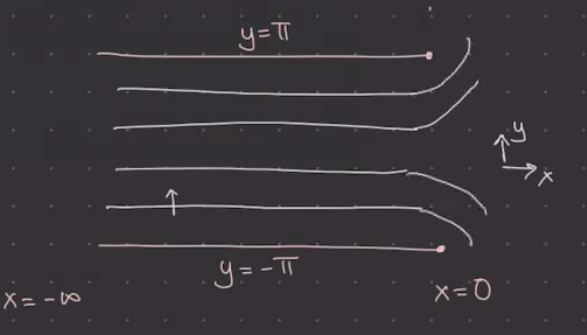 y=π
y
x
y=-π
x=-∞
x=0